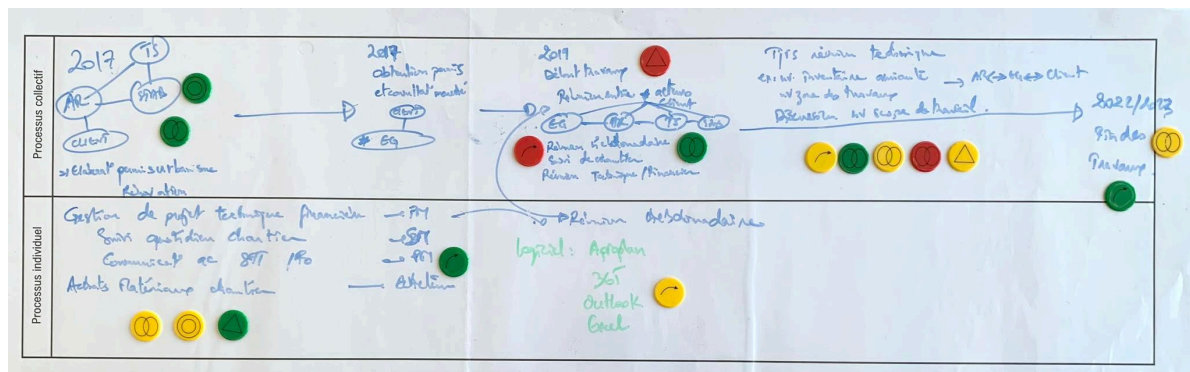 Processus collectif
2017
TS
STAB
AR
CLIENT
Elaborat° permis urbanisme
Rénovation
2017
obtention permis
CLIENT
* EG
2019
Début travaux
Réunion entre acteurs
Client
EG
AR
TS
Réunion hebdomadaire
Suivi de chantier
Réunion Technique / Financier
Tjrs réunion technique
inventaire amiante → AR ↔ EG ↔ Client
zone des travaux
Discussion scope de travail.
2022/2023
Fin des
Travaux
Processus individuel
Gestion de projet technique financier — PM
Suivi quotidien chantier
Communicat° ac
Achats Matériaux chantier
Réunion hebdomadaire
Logiciel : Aproplan
365
Outlook
Excel